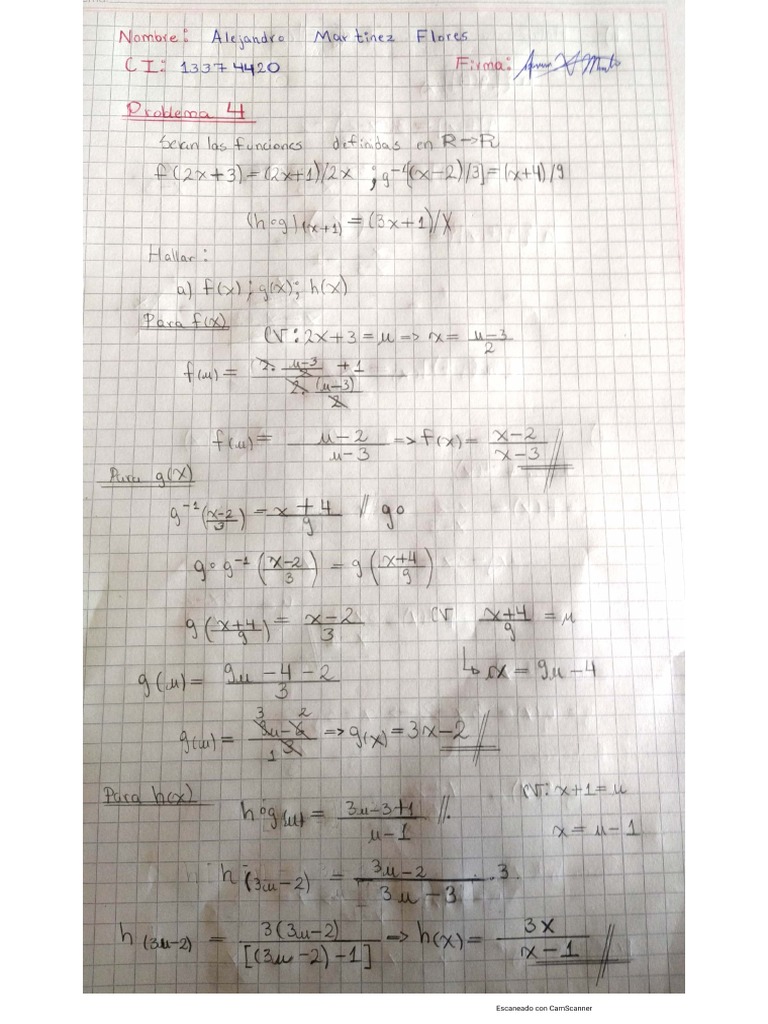 Nombre: Alejandro Martinez Flores
CI: 13374420 Firma:
Problema 4
Sean las funciones definidas en R→R
f(2x+3)=(2x+1)/2x ; g⁻¹[(x-2)/3]=(x+4)/9
(h∘g)(x+1)=(3x+1)/x
Hallar:
a) f(x); g(x); h(x)
Para f(x) CV: 2x+3=u => x= (u-3)/2
f(u)= (2·(u-3)/2 +1)/(2·(u-3)/2)
f(u)= (u-2)/(u-3) => f(x)= (x-2)/(x-3) //
Para g(x)
g⁻¹((x-2)/3) = (x+4)/9 // g∘
g∘g⁻¹((x-2)/3) = g((x+4)/9)
g((x+4)/9) = (x-2)/3 CV (x+4)/9 = u
g(u)= (9u-4-2)/3 ↳ x=9u-4
g(u)= (9u-6)/3 => g(x)=3x-2 //
Para h(x) CV: x+1=u
h∘g(u) = (3u-3+1)/(u-1) //. x=u-1
h(3u-2) = (3u-2)/(3u-3) · 3
h(3u-2) = 3(3u-2)/[(3u-2)-1] => h(x)= 3x/(x-1) //
Escaneado con CamScanner